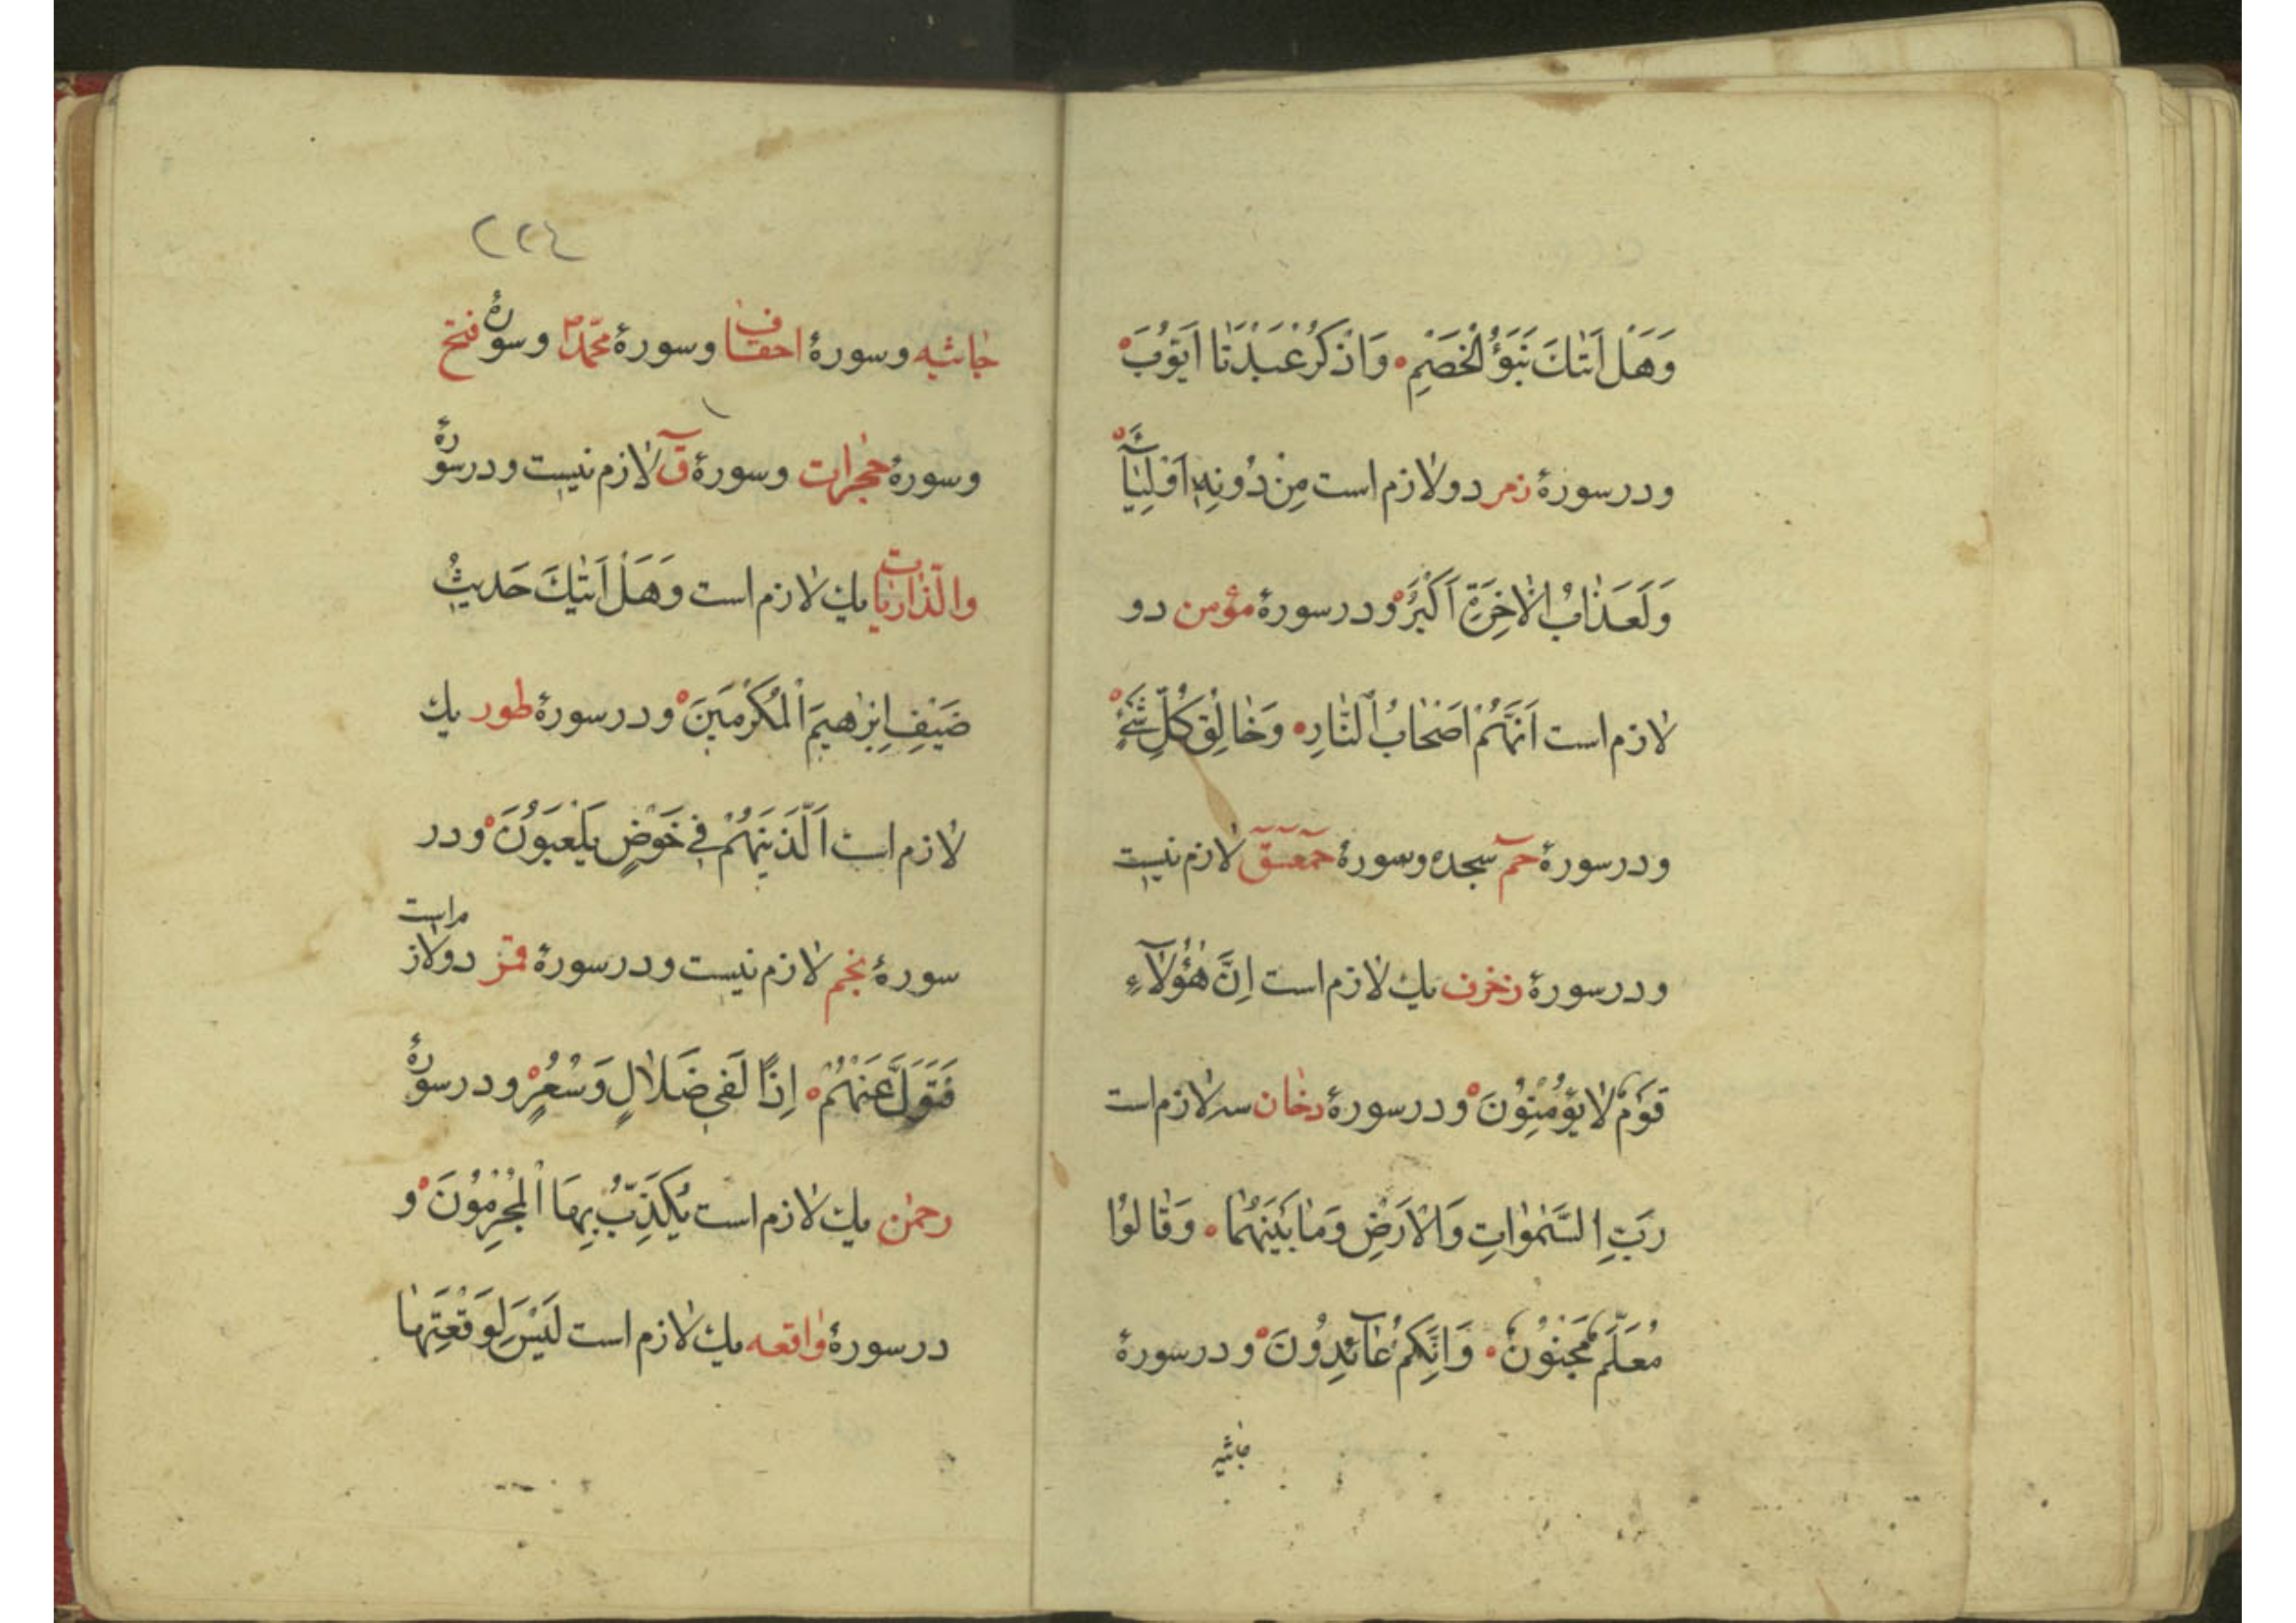 وَهَلْ اَتٰكَ نَبَؤُ الْخَصْمِ ۰ وَاذْكُرْ عَبْدَنَا اَيُّوبَ ۰
و در سورۀ زمر دو لازم است مِنْ دُونِهٖ اَوْلِيَآءَ ۰
وَلَعَذَابُ الْاٰخِرَةِ اَكْبَرُ ۰ و در سورۀ مؤمن دو
لازم است اَنَّهُمْ اَصْحَابُ النَّارِ ۰ وَخَالِقُ كُلِّ شَیْءٍ ۰
و در سورۀ حٓمٓ سجده و سورۀ حٓمٓعٓسٓقٓ لازم نیست
و در سورۀ زخرف یك لازم است اِنَّ هٰؤُلَآءِ
قَوْمٌ لَا يُؤْمِنُونَ ۰ و در سورۀ دخان سه لازم است
رَبِّ السَّمٰوَاتِ وَالْاَرْضِ وَمَا بَيْنَهُمَا ۰ وَقَالُوا
مُعَلَّمٌ مَجْنُونٌ ۰ وَاِنَّكُمْ عَآئِدُونَ ۰ و در سورۀ
جاثیه
٢٢٤
جاثیه و سورۀ احقاف و سورۀ محمّد و سورۀ فتح
و سورۀ حجرات و سورۀ قٓ لازم نیست و در سورۀ
والذّاریات یك لازم است وَهَلْ اَتٰيكَ حَدِيثُ
ضَيْفِ اِبْرٰهِيمَ الْمُكْرَمِينَ ۰ و در سورۀ طور یك
لازم است اَلَّذِينَ هُمْ فِي خَوْضٍ يَلْعَبُونَ ۰ و در
سورۀ نجم لازم نیست و در سورۀ قمر دو لازم است
فَتَوَلَّ عَنْهُمْ ۰ اِذًا لَفِي ضَلَالٍ وَسُعُرٍ ۰ و در سورۀ
رحمٰن یك لازم است يُكَذِّبُ بِهَا الْمُجْرِمُونَ ۰ و
در سورۀ واقعه یك لازم است لَيْسَ لِوَقْعَتِهَا